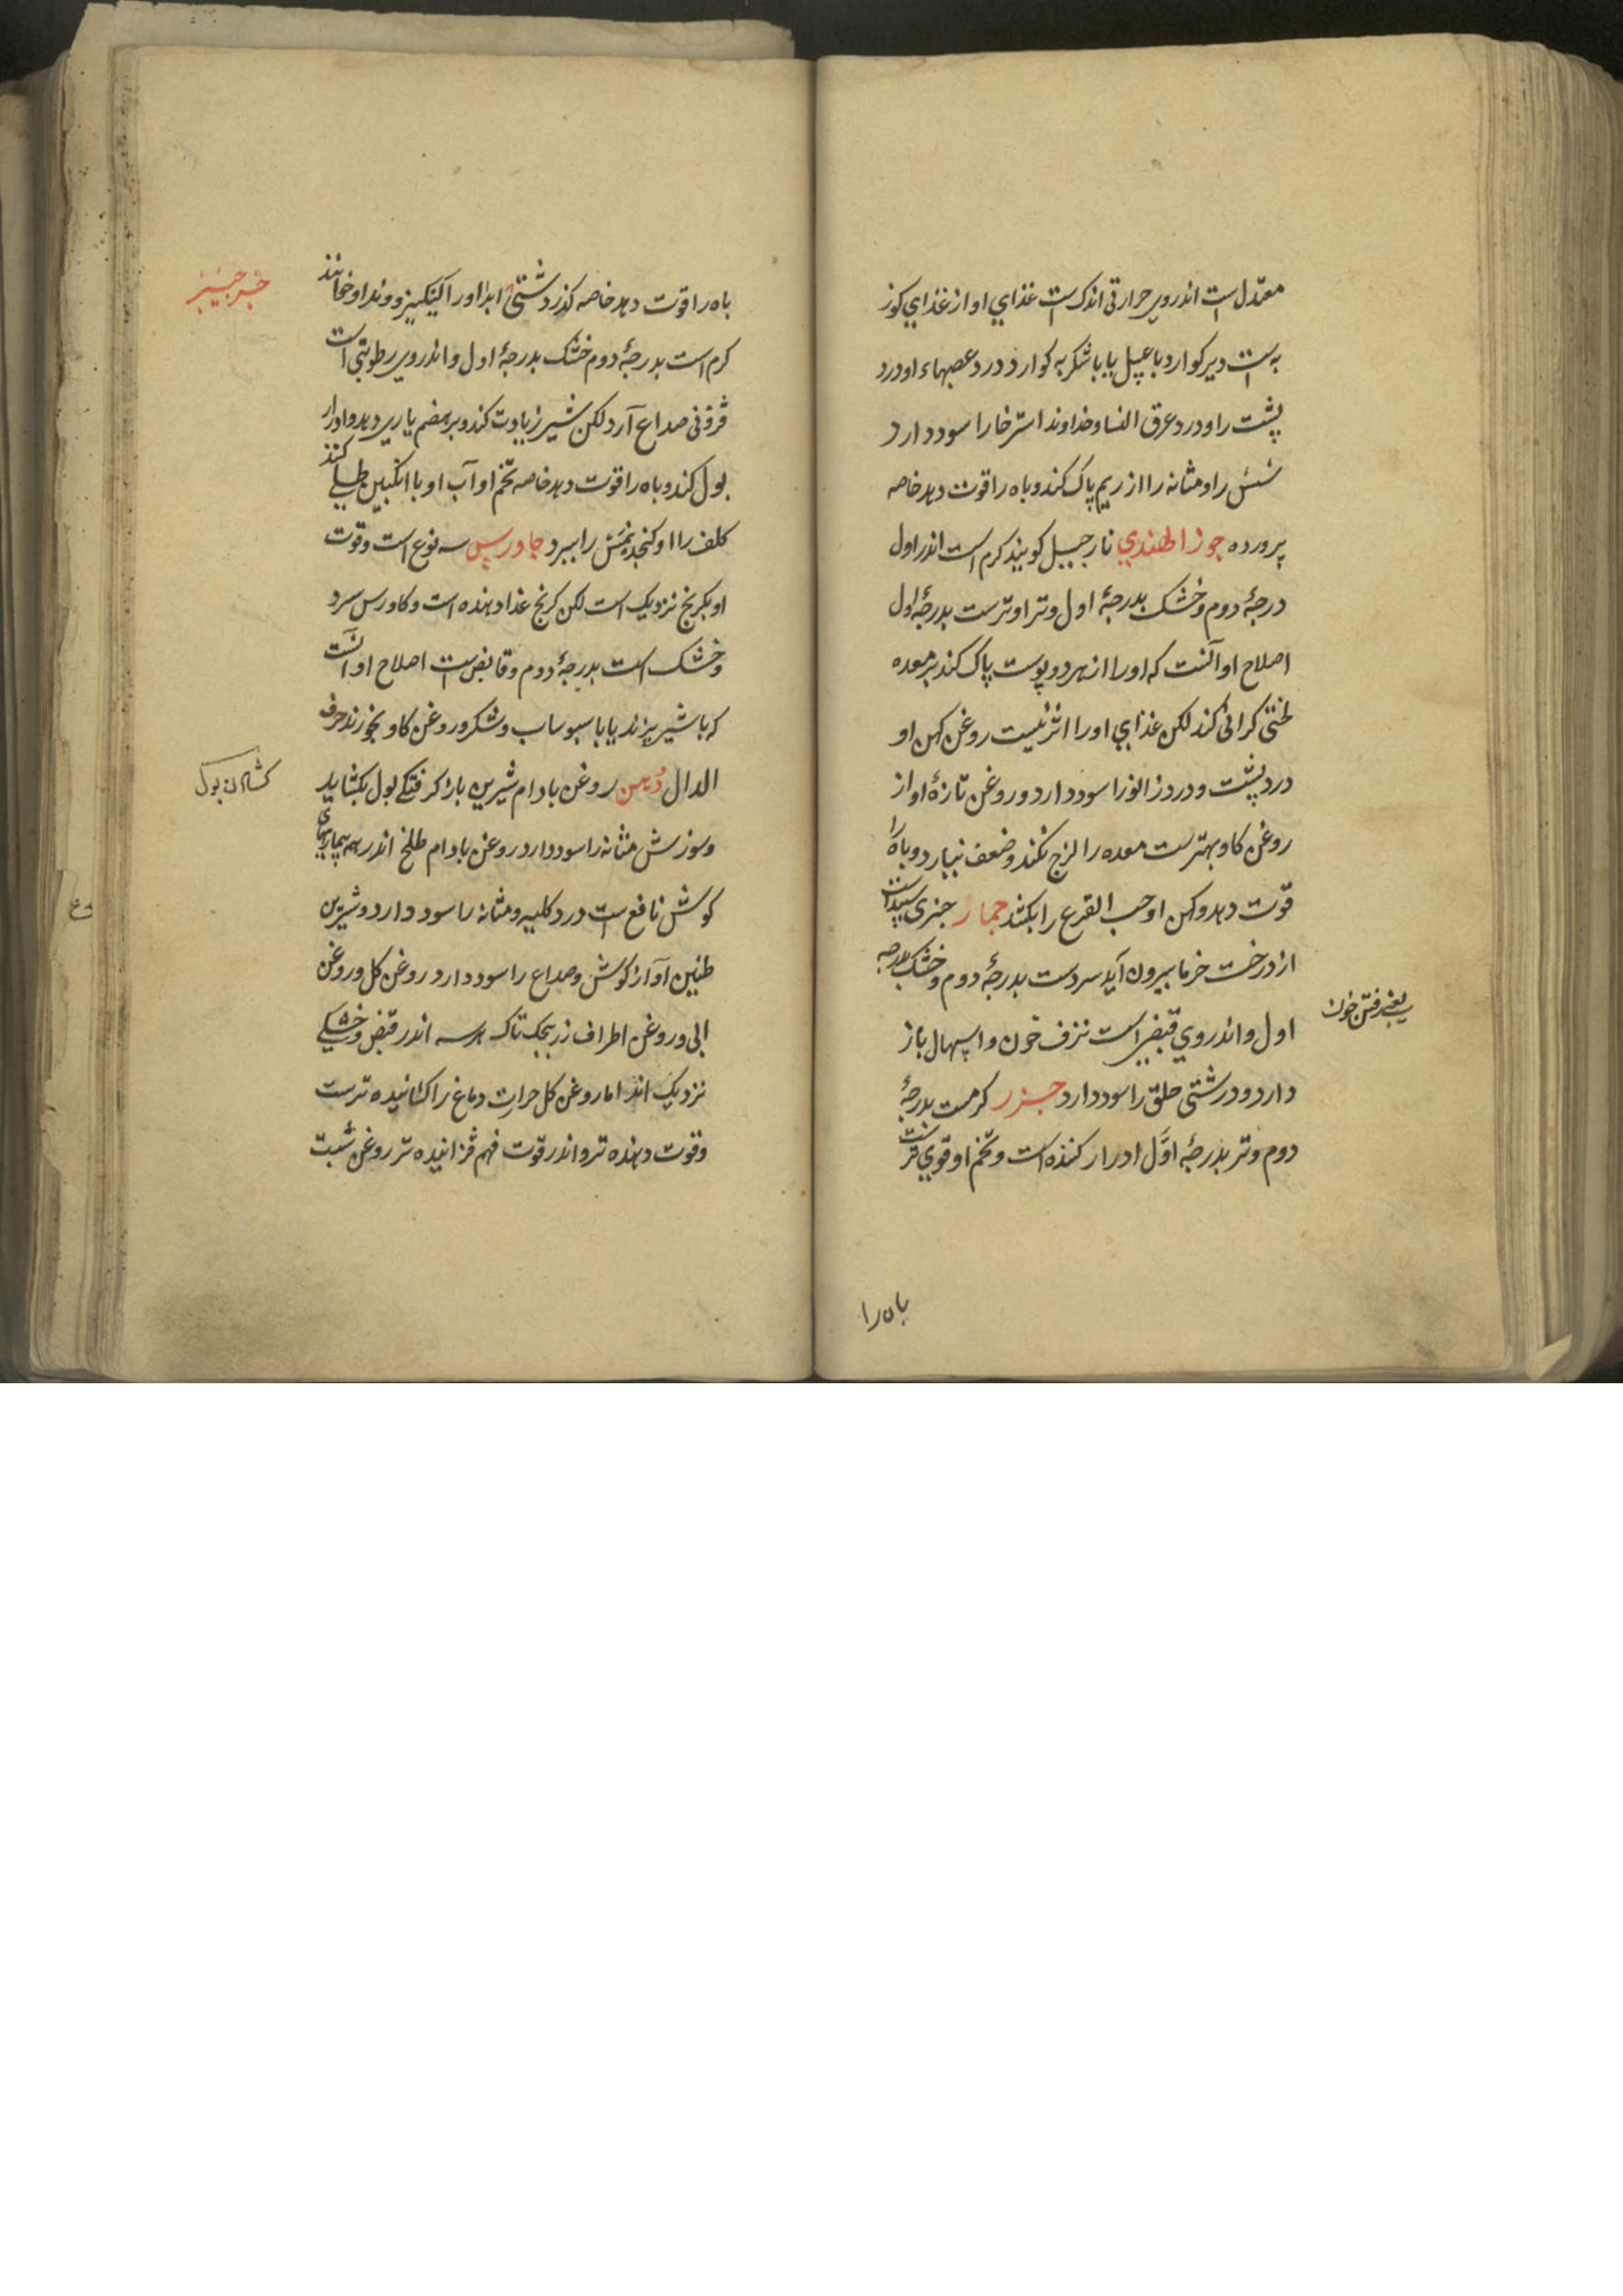 معتدل است اندروی حرارتی اندک است غذای او از غذای کوز
به است دیر کوارد با عسل یا با شکر به کوارد درد عصبهاء او درد
پشت را و درد عرق النسا و خداوند استرخا را سود دارد
شش را و مثانه را از ریم پاک کند و باه را قوت دهد خاصه
پرورده جوز الهندی نارجیل کویند کرم است اندر اول
درجهٔ دوم و خشک بدرجهٔ اول و تر او ترست بدرجهٔ اول
اصلاح او آنست که او را از هر دو پوست پاک کند بر معده
لختی کرانی کند لکن غذای او را اثر نیست روغن کهن او
درد پشت و درد زانو را سود دارد و روغن تازهٔ او از
روغن کاو بهترست معده را لزج نکند و ضعف نیارد و باه را
قوت دهد و کهن او حب القرع را بکشد جمار چیزی سپید است
از درخت خرما بیرون آید سردست بدرجهٔ دوم و خشک بدرجه
اول و اندروی قبض است نزف خون و اسهال باز
یعنی رفتن خون
دارد و درشتی حلق را سود دارد جزر کرمست بدرجهٔ
دوم و تر بدرجهٔ اوّل ادرار کننده است و تخم او قوی ترست
باه را
باه را قوت دهد خاصه کزر دشتی او را خوانند
جرجیر
کرم است بدرجهٔ دوم خشک بدرجهٔ اول و اندروی رطوبتی است
صداع آرد لکن شیر زیادت کند و بر هضم یاری دهد و ادرار
بول کند و باه را قوت دهد خاصه تخم او آب او با انکبین طلی کنند
کلف را و کنجد نمش را ببرد جاورس سه نوع است و قوت
او بکرنج نزدیک است لکن کرنج غذا دهنده است و کاورس سرد
و خشک است بدرجهٔ دوم و قابض است اصلاح او آنست
که با شیر پزند یا با سبوساب و شکر و روغن کاو بخورند حرف
الدال دُهن روغن بادام شیرین باز کرفتکی بول بکشاید
کشادن بول
و سوزش مثانه را سود دارد روغن بادام طلخ اندر همه بیماریهای
کوش نافع است درد کلیه و مثانه را سود دارد و شیرین
طنین آواز کوش و صداع را سود دارد روغن کل و روغن
و روغن اطراف تاک هر سه اندر قبض و خشکی
نزدیک اند اما روغن کل حرارت دماغ را ترست
و قوت دهنده تر و اندر قوت فهم فزاینده تر روغن شبت